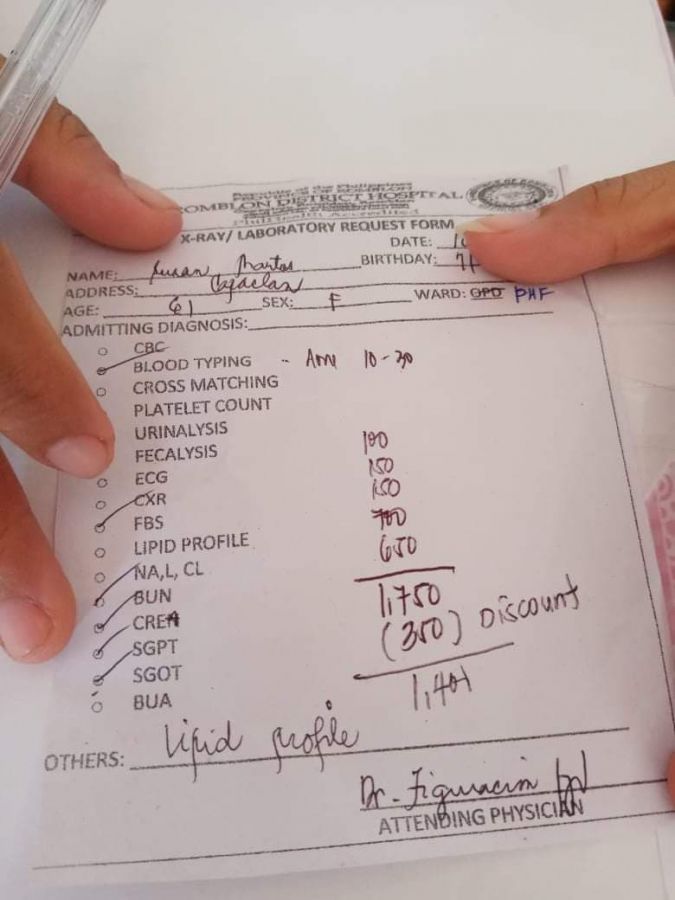 Republic of the Philippines
PROVINCE OF ROMBLON
ROMBLON DISTRICT HOSPITAL
PhilHealth Accredited
X-RAY/ LABORATORY REQUEST FORM
DATE: 10
NAME: Susan Mantos BIRTHDAY: 7/
ADDRESS: Cajaclan
AGE: 61 SEX: F WARD: OPD PHF
ADMITTING DIAGNOSIS:
CBC
BLOOD TYPING 10-30
CROSS MATCHING
PLATELET COUNT
URINALYSIS
FECALYSIS 100
ECG 150
CXR 150
FBS 700
LIPID PROFILE 650
NA,L, CL
BUN 1,750
CREA (350) DISCOUNT
SGPT
SGOT 1,401
BUA
OTHERS: Lipid profile
Dr. Figuracion
ATTENDING PHYSICIAN